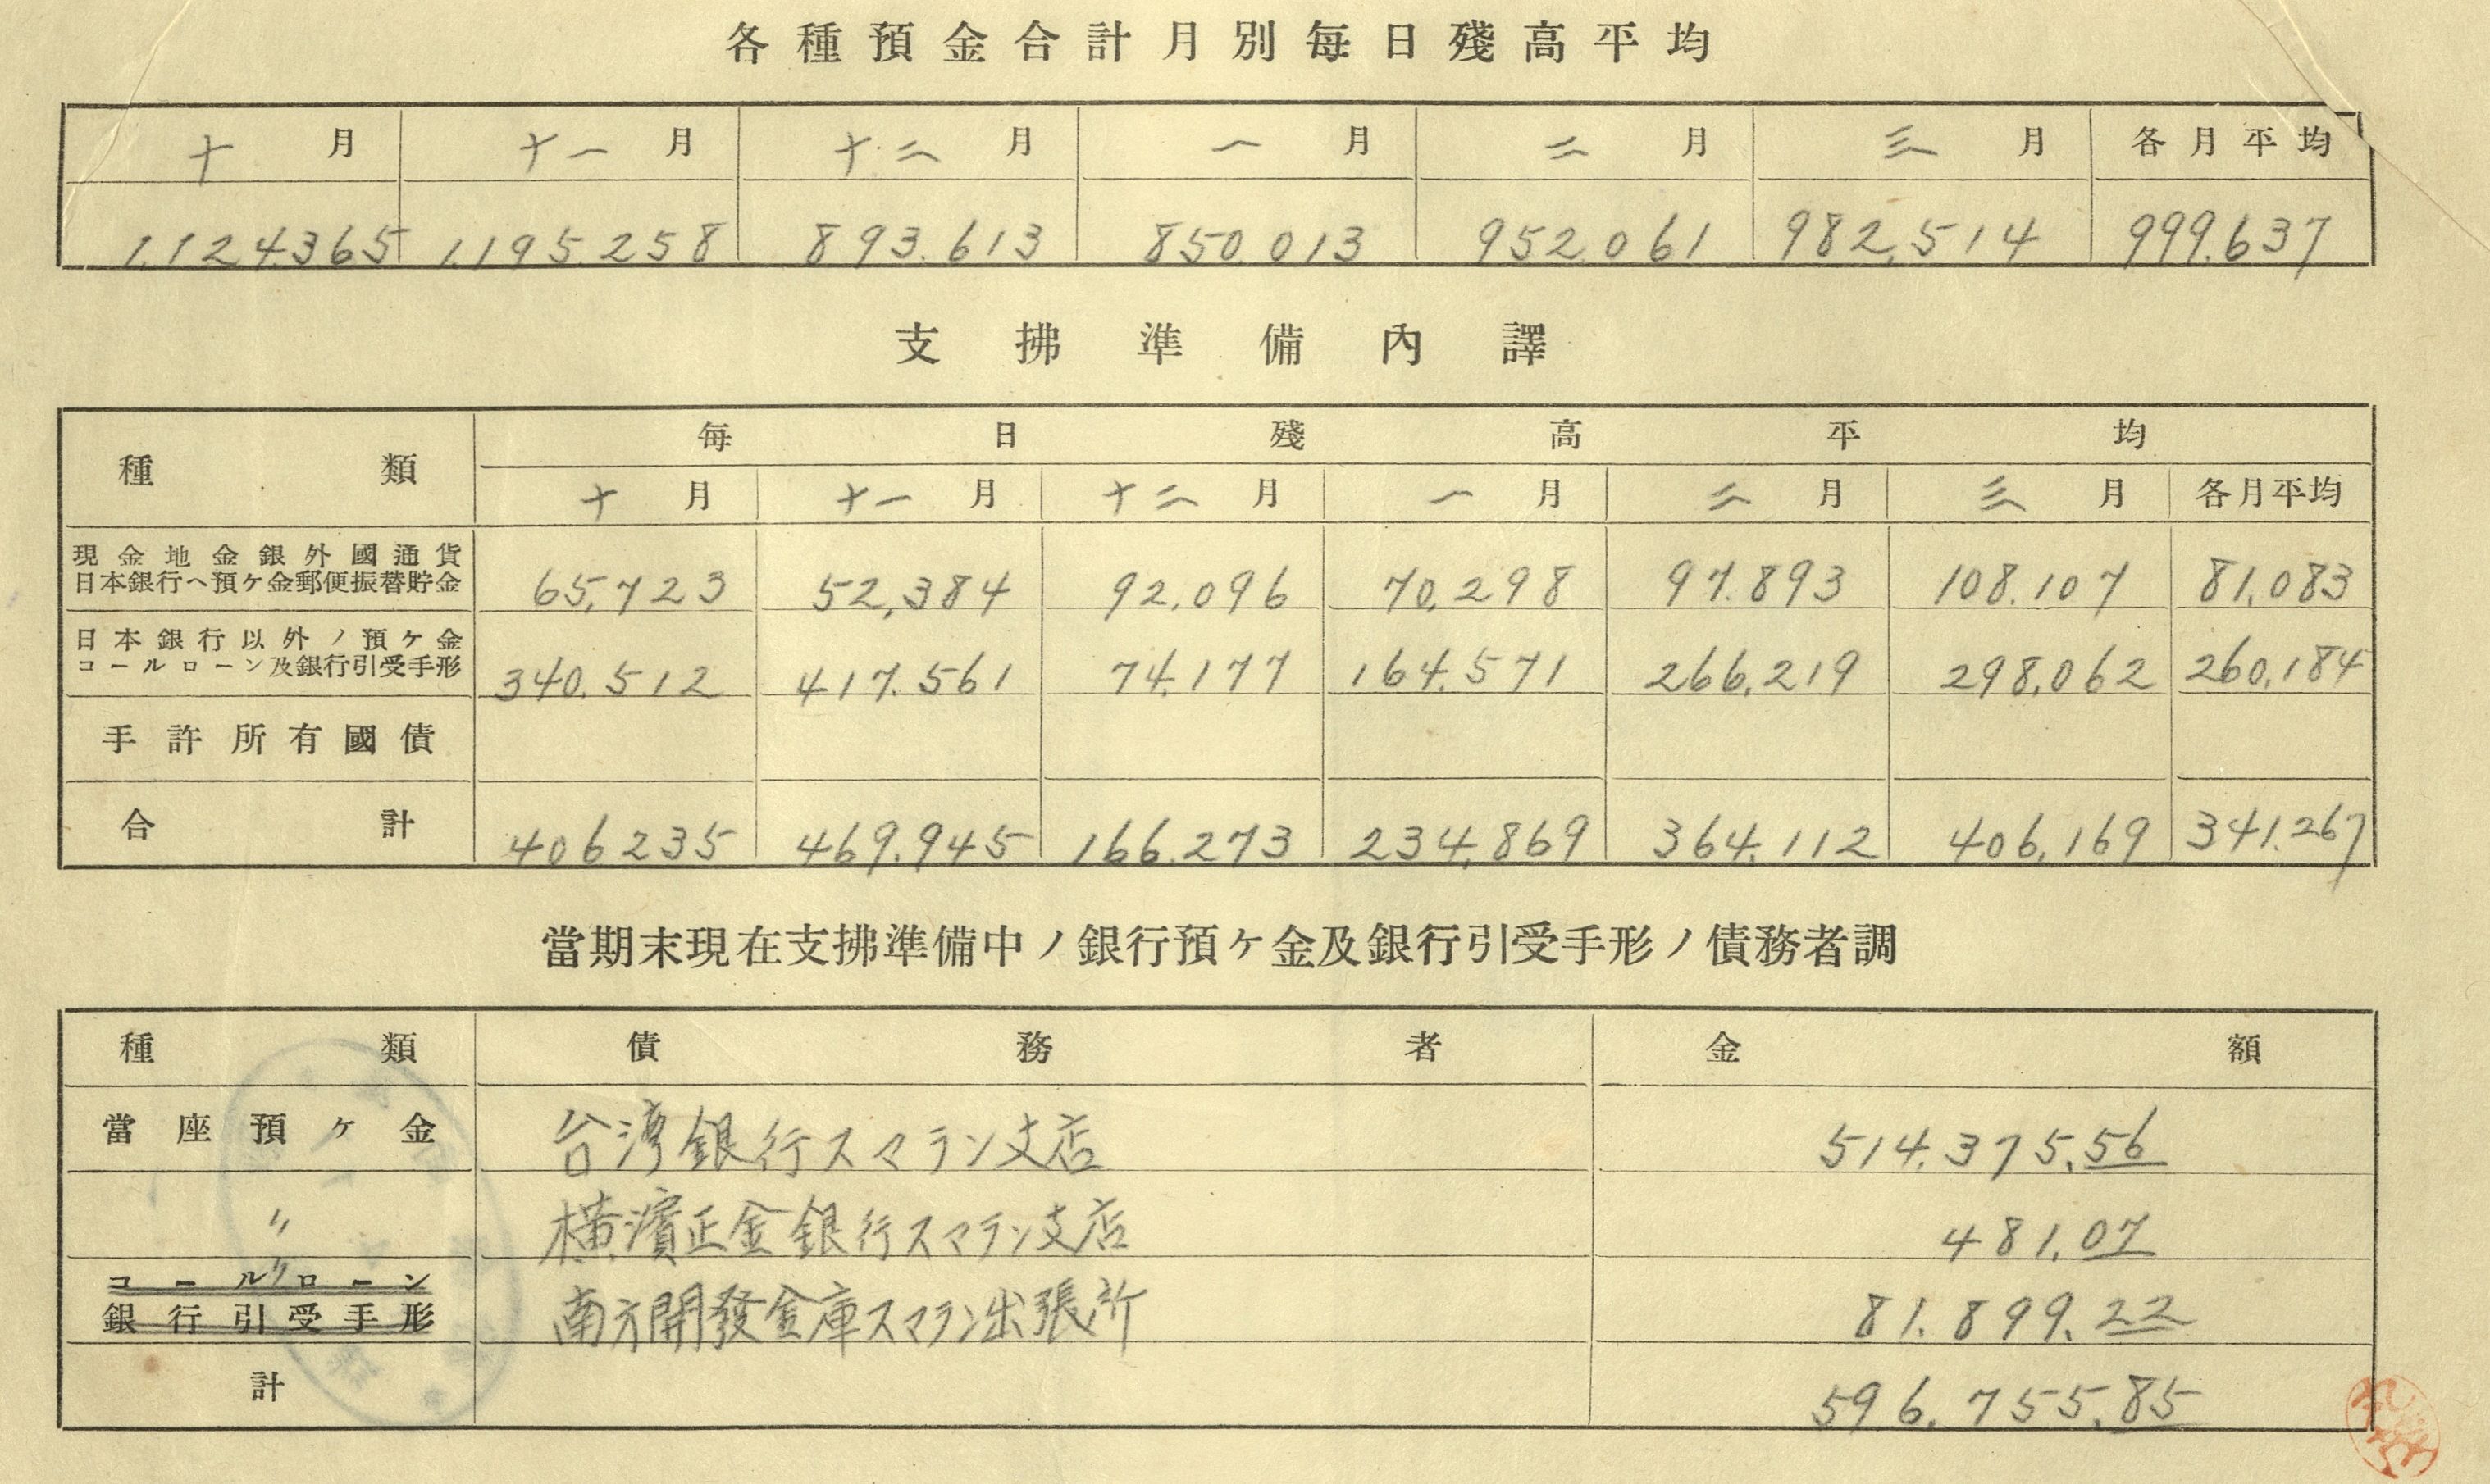 各種預金合計月別每日殘高平均
十月 十一月 十二月 一月 二月 三月 各月平均
1,124,365 1,195,258 893,613 850,013 952,061 982,514 999,637
支拂準備內譯
種類 每日殘高平均
十月 十一月 十二月 一月 二月 三月 各月平均
現金地金銀外國通貨
日本銀行ヘ預ケ金郵便振替貯金 65,723 52,384 92,096 70,298 97,893 108,107 81,083
日本銀行以外ノ預ケ金
コールローン及銀行引受手形 340,512 417,561 74,177 164,571 266,219 298,062 260,184
手許所有國債
合計 406235 469,945 166,273 234,869 364,112 406,169 341,267
當期末現在支拂準備中ノ銀行預ケ金及銀行引受手形ノ債務者調
種類 債務者 金額
當座預ケ金 台湾銀行スマラン支店 514,375.56
〃 横濱正金銀行スマラン支店 481.07
〃
コールローン
銀行引受手形 南方開發金庫スマラン出張所 81,899.22
計 596,755.85